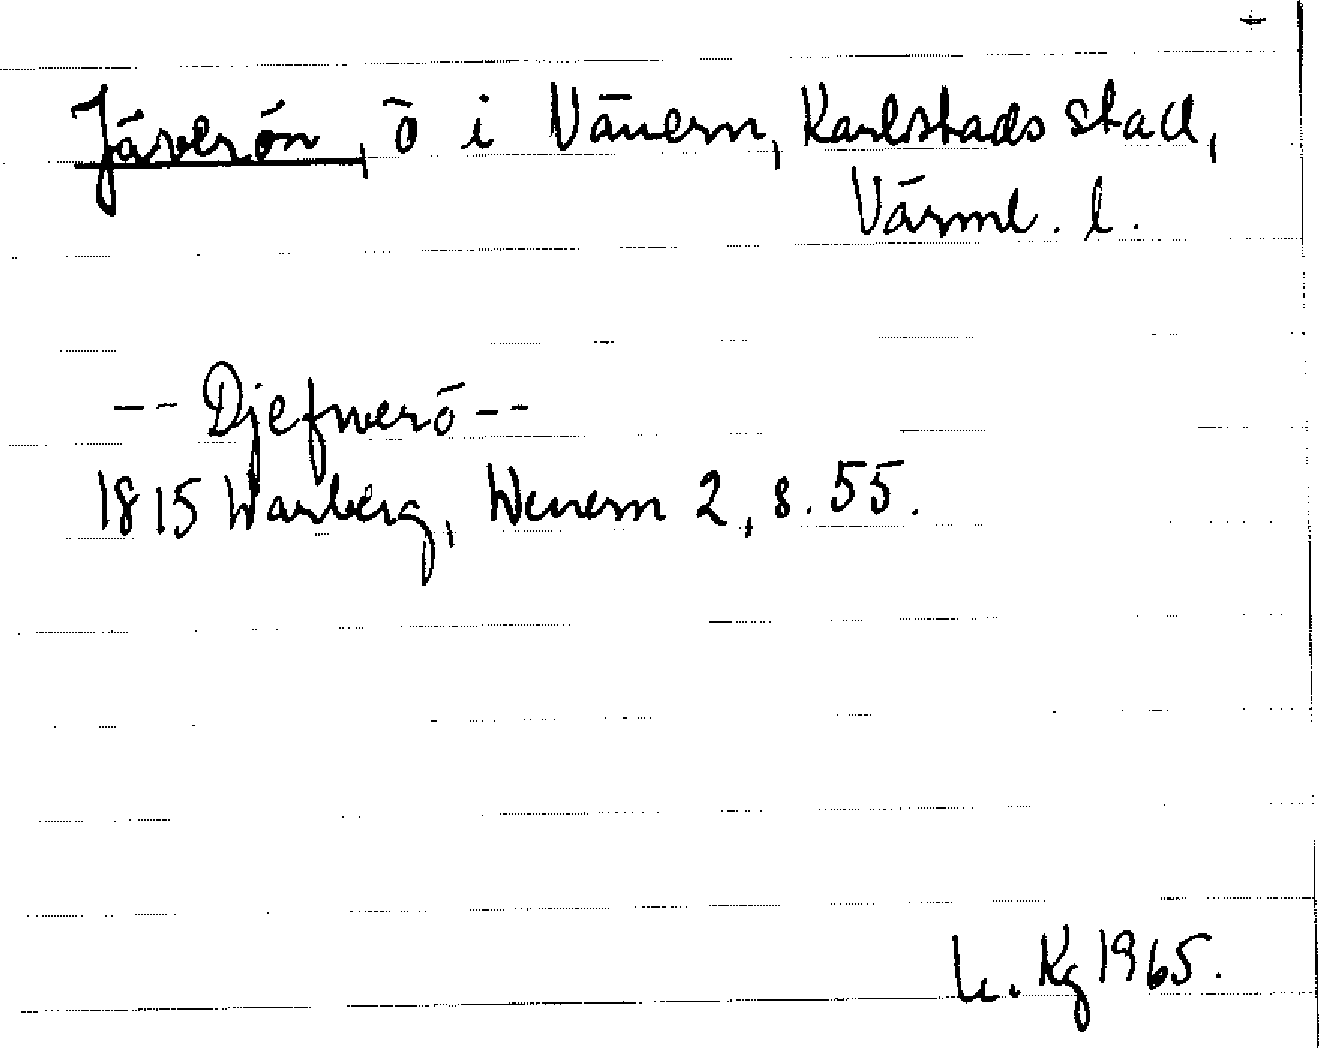 Jäverön, ö i Vänern, Karlstads stad,
Värml. l.
-- Djefwerö --
1815 Warberg, Wenern 2, s. 55.
Kg 1965.